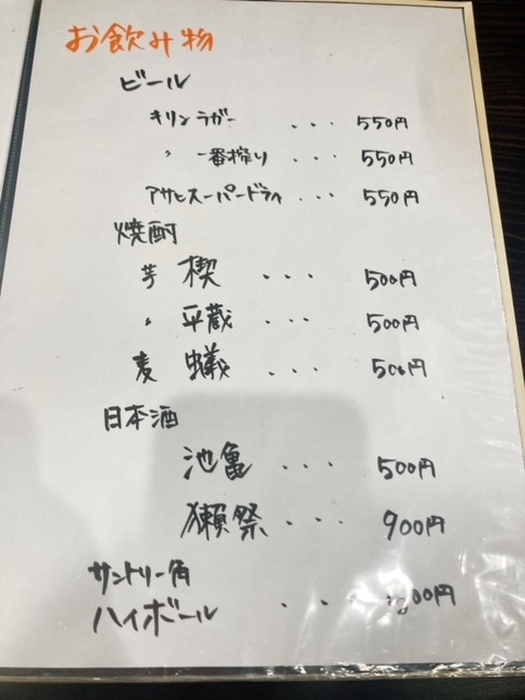 お飲み物
ビール
キリンラガー ... 550円
〃 一番搾り ... 550円
アサヒスーパードライ ... 550円
焼酎
芋 楔 ... 500円
〃 平蔵 ... 500円
麦 蟻 ... 500円
日本酒
池亀 ... 500円
獺祭 ... 900円
サントリー角
ハイボール ...